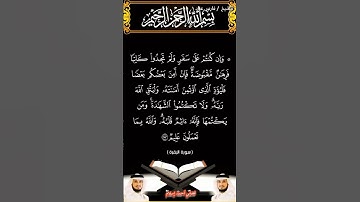 بسم الله الرحمن الرحيم
۞ وَإِن كُنتُمْ عَلَىٰ سَفَرٍ وَلَمْ تَجِدُوا۟ كَاتِبًا
فَرِهَٰنٌ مَّقْبُوضَةٌ فَإِنْ أَمِنَ بَعْضُكُم بَعْضًا
فَلْيُؤَدِّ ٱلَّذِى ٱؤْتُمِنَ أَمَٰنَتَهُۥ وَلْيَتَّقِ ٱللَّهَ
رَبَّهُۥ وَلَا تَكْتُمُوا۟ ٱلشَّهَٰدَةَ وَمَن
يَكْتُمْهَا فَإِنَّهُۥٓ ءَاثِمٌ قَلْبُهُۥ وَٱللَّهُ بِمَا
تَعْمَلُونَ عَلِيمٌ
(سورة البقرة)